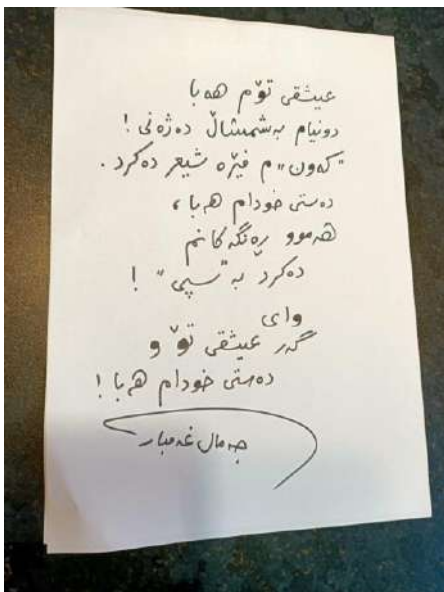 عیشقی تۆم هەبا
دونیام بەشمشاڵ دەژەنی!
"کەون"م فێرە شیعر دەکرد.
دەستی خودام هەبا،
هەموو ڕەنگەکانم
دەکرد بە "سپی"!
وای
گەر عیشقی تۆ و
دەستی خودام هەبا!
جەمال غەمبار